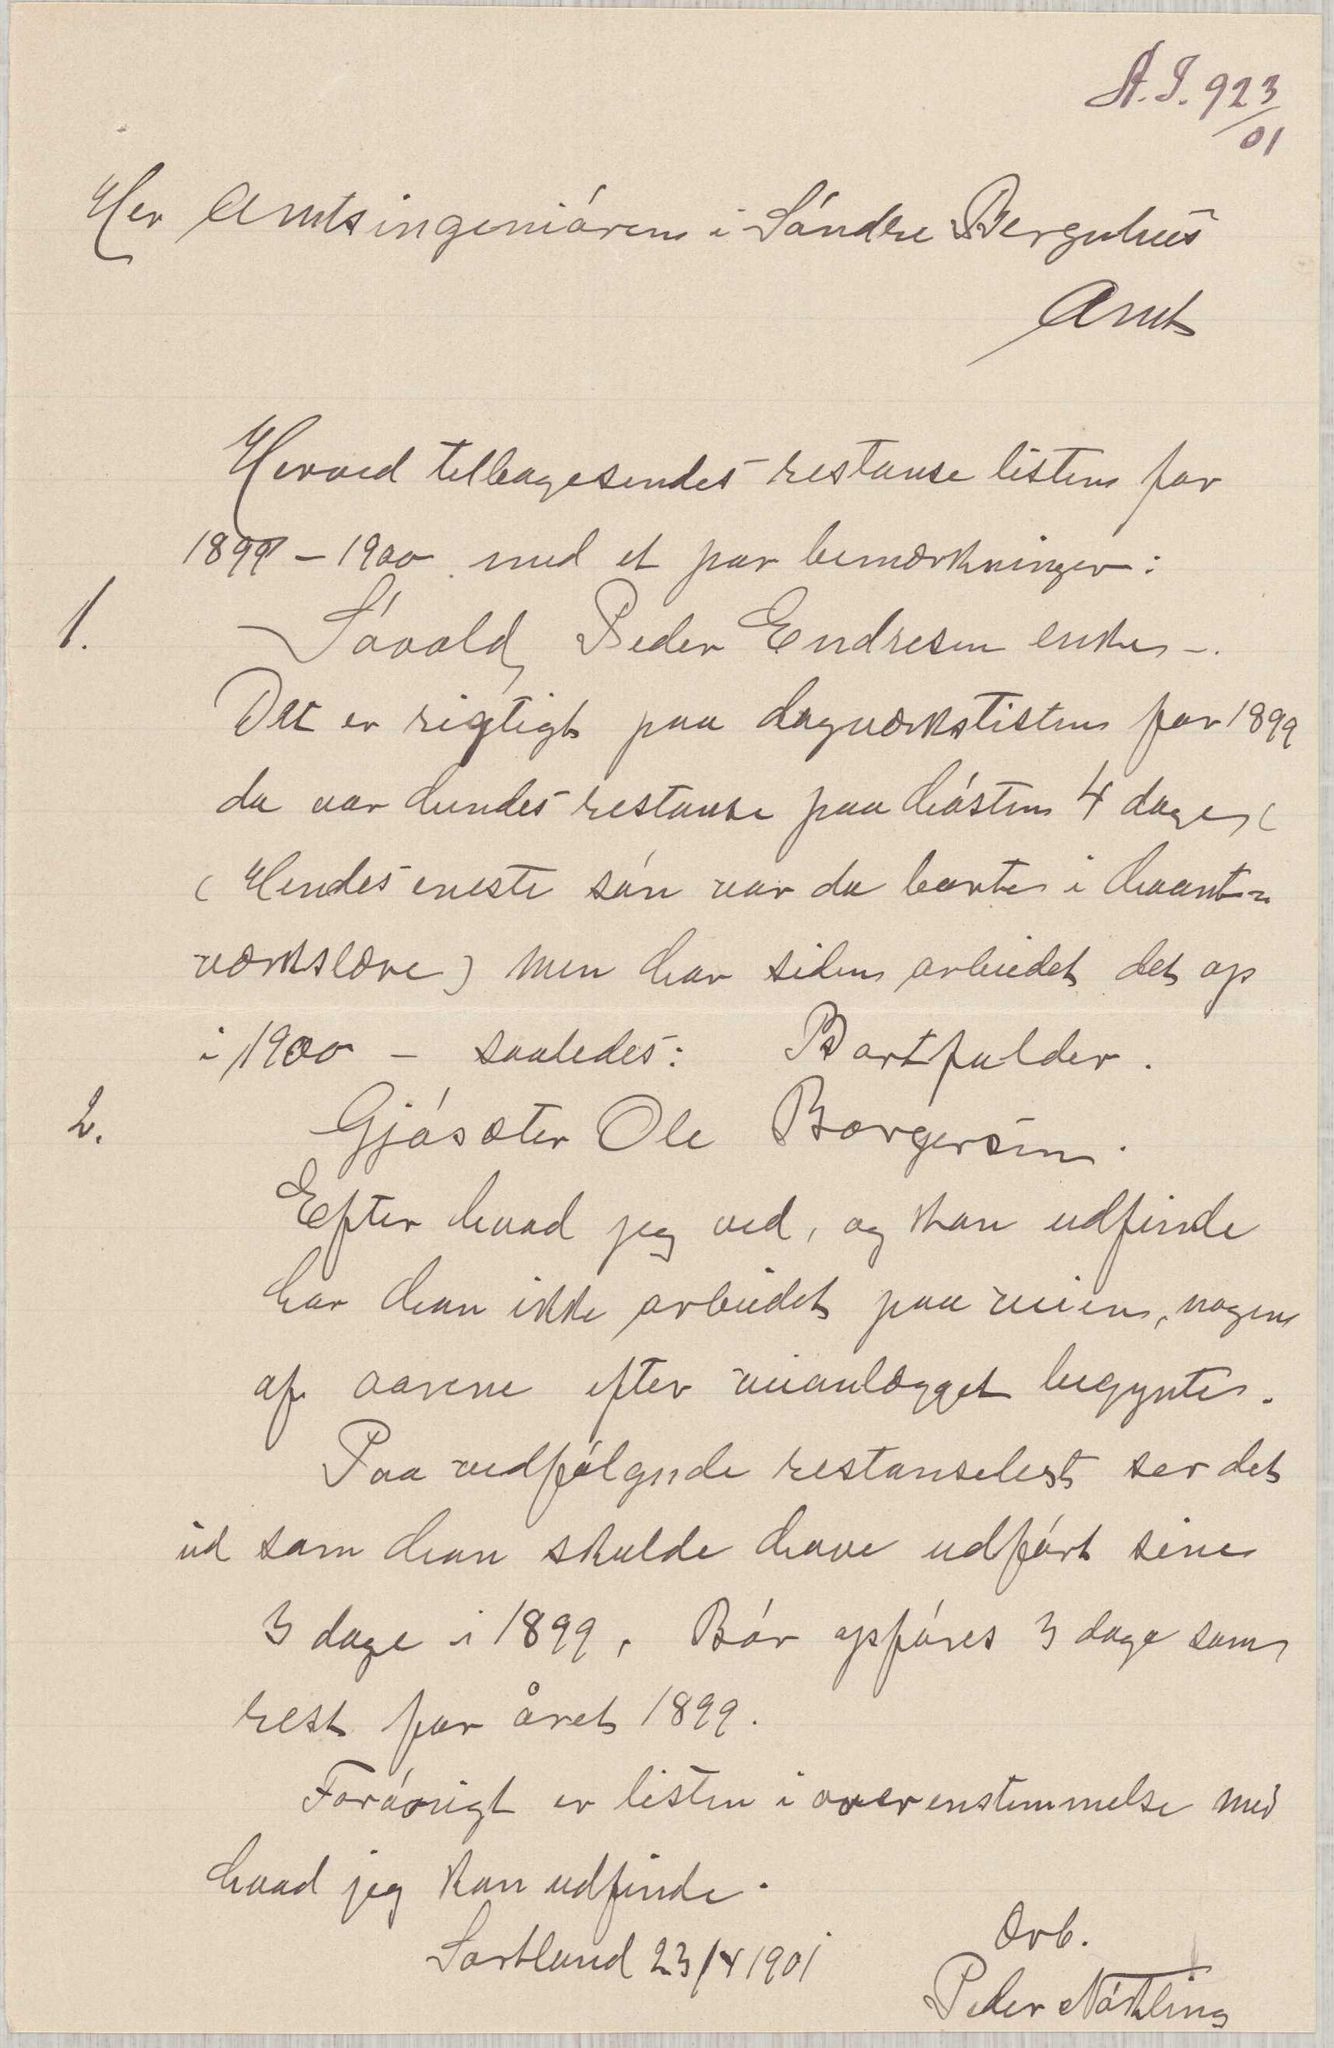 A.I. 923/01
Her Amtsingeniøren i Søndre Bergenhus
Amt
Herved tilbagesendes restanse listen for
1899 - 1900 med et par bemærkninger:
1. Søvold, Peder Endresen enke -.
Det er rigtigt paa dagværkslisten for 1899
da var hendes restanse paa høsten 4 dage,
( Hendes eneste søn var da borte i haant-
værkslære) men har siden arbeidet det op
i 1900 - saaledes: Bortfalder.
2. Gjøsæter Ole Børgersen.
Efter hvad jeg ved, og kan udfinde
har han ikke arbeidet paa veien, nogen
af aarene efter veianlægget begyntes.
Paa vedfølgnde restanselist ser det
ud som han skulde have udført sine
3 dage i 1899, Bør opføres 3 dage som
rest for året 1899.
Forøvrigt er listen i overenstemmelse med
hvad jeg kan udfinde.
Sortland 23/4 1901
Ærb.
Peder Nøkling